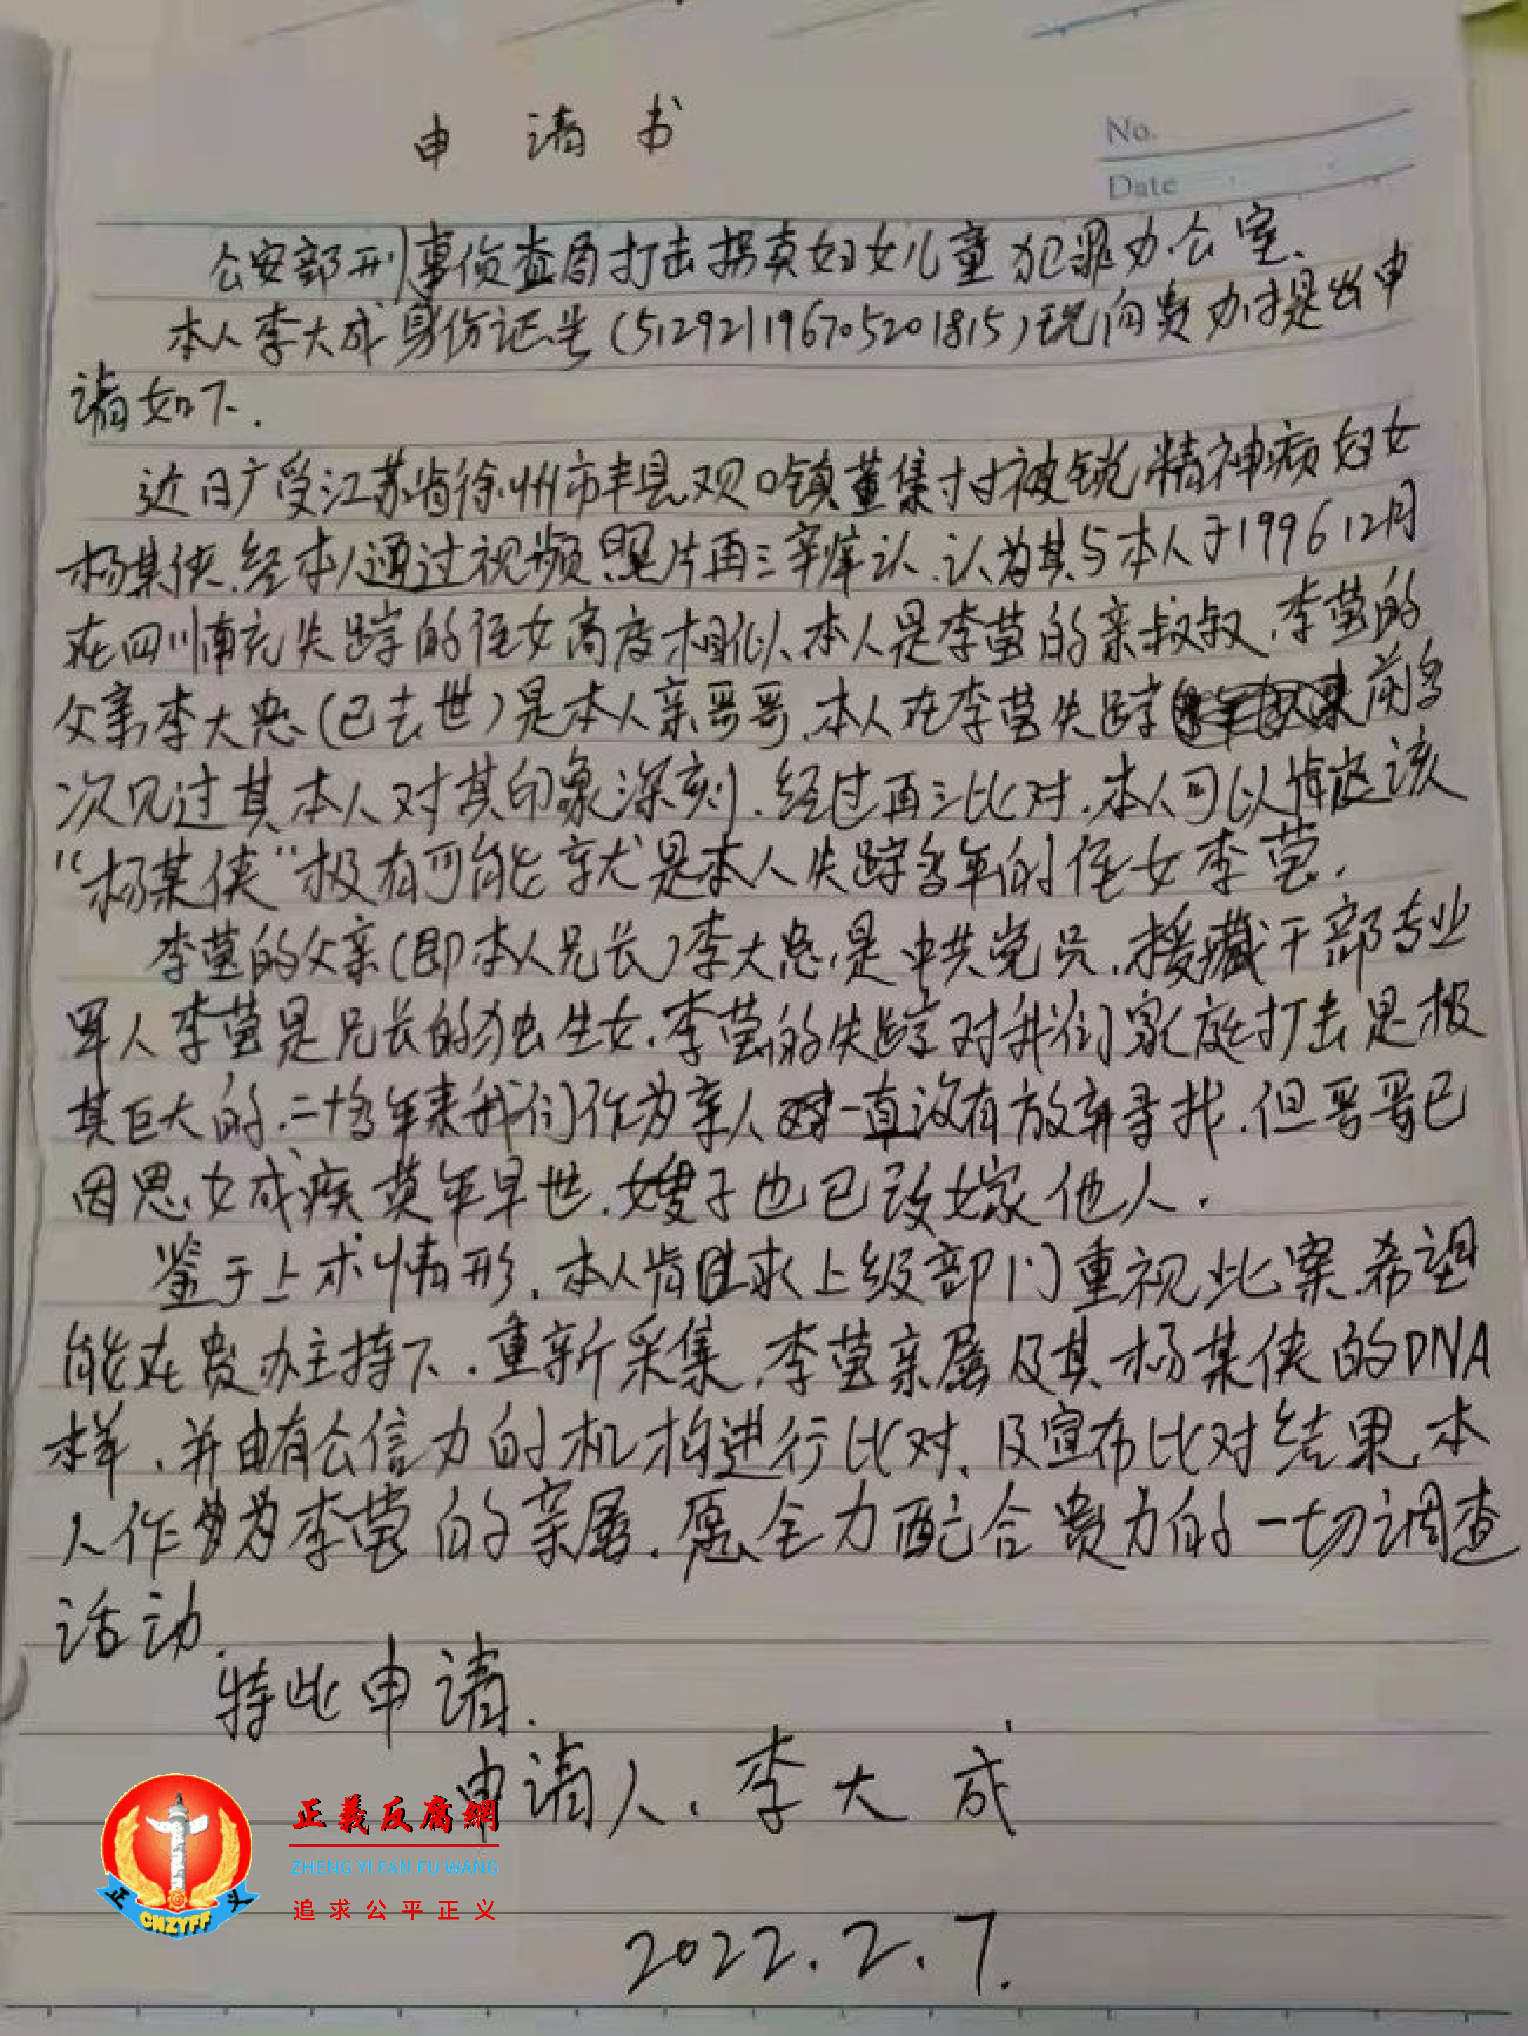 申请书
No.
Date
公安部刑事侦查局打击拐卖妇女儿童犯罪办公室.
本人李大成身份证号(512921196705201815)现向贵办提出申
请如下.
近日广受江苏省徐州市丰县欢口镇董集村被锁精神病妇女
杨某侠.经本人通过视频照片再三辨认.认为其与本人于1996 12月
在四川南充失踪的侄女高度相似.本人是李莹的亲叔叔.李莹的
父亲李大忠(已去世)是本人亲哥哥.本人在李莹失踪前多
次见过其本人对其印象深刻.经过再三比对.本人可以确定该
“杨某侠”极有可能就是本人失踪多年的侄女李莹.
李莹的父亲(即本人兄长)李大忠是中共党员.援藏干部专业
军人李莹是兄长的独生女.李莹的失踪对我们家庭打击是极
其巨大的.二十多年来我们作为亲人一直没有放弃寻找.但哥哥已
因思女成疾英年早世.嫂子也已改嫁他人.
鉴于上术情形.本人肯且求上级部门重视此案.希望
能在贵办主持下.重新采集.李莹亲属及其杨某侠的DNA
样.并由有公信力的机构进行比对.及宣布比对结果.本
人作为李莹的亲属.愿全力配合贵方的一切调查
活动.
特此申请.
申请人.李大成
2022.2.7.
正義反腐網
ZHENG YI FAN FU WANG
追求公平正义
正 义
CNZYFF